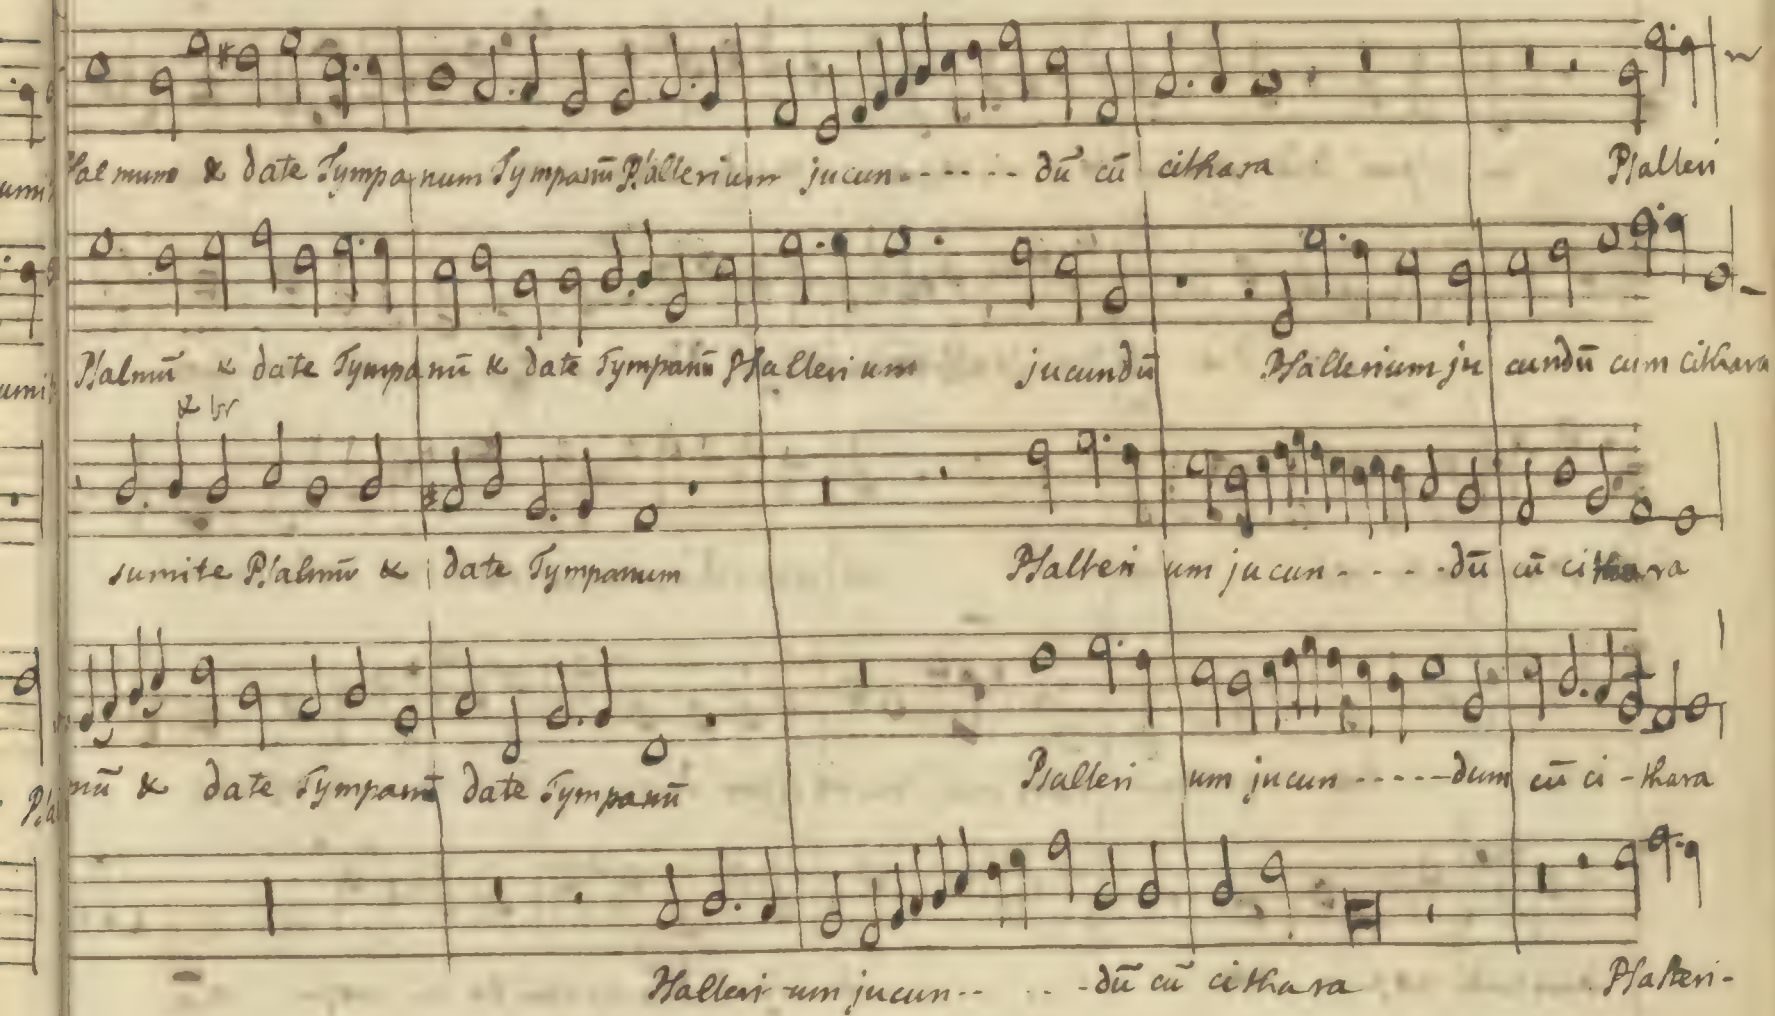 umi Psalmum & date Tympanum Tympanū Psalterium jucun- - - - - - dū cū cithara Psalteri
umi Psalmū & date Tympanū & date Tympanū Psalterium jucundū Psalterium ju cundū cum cithara
sumite Psalmū & date Tympanum Psalteri um jucun - - - - dū cū cithara
Psal mū & date Tympanū date Tympanū Psalteri um jucun - - - - - dum cū ci - thara
Psalteri -um jucun- - - - - dū cū cithara Psalteri-